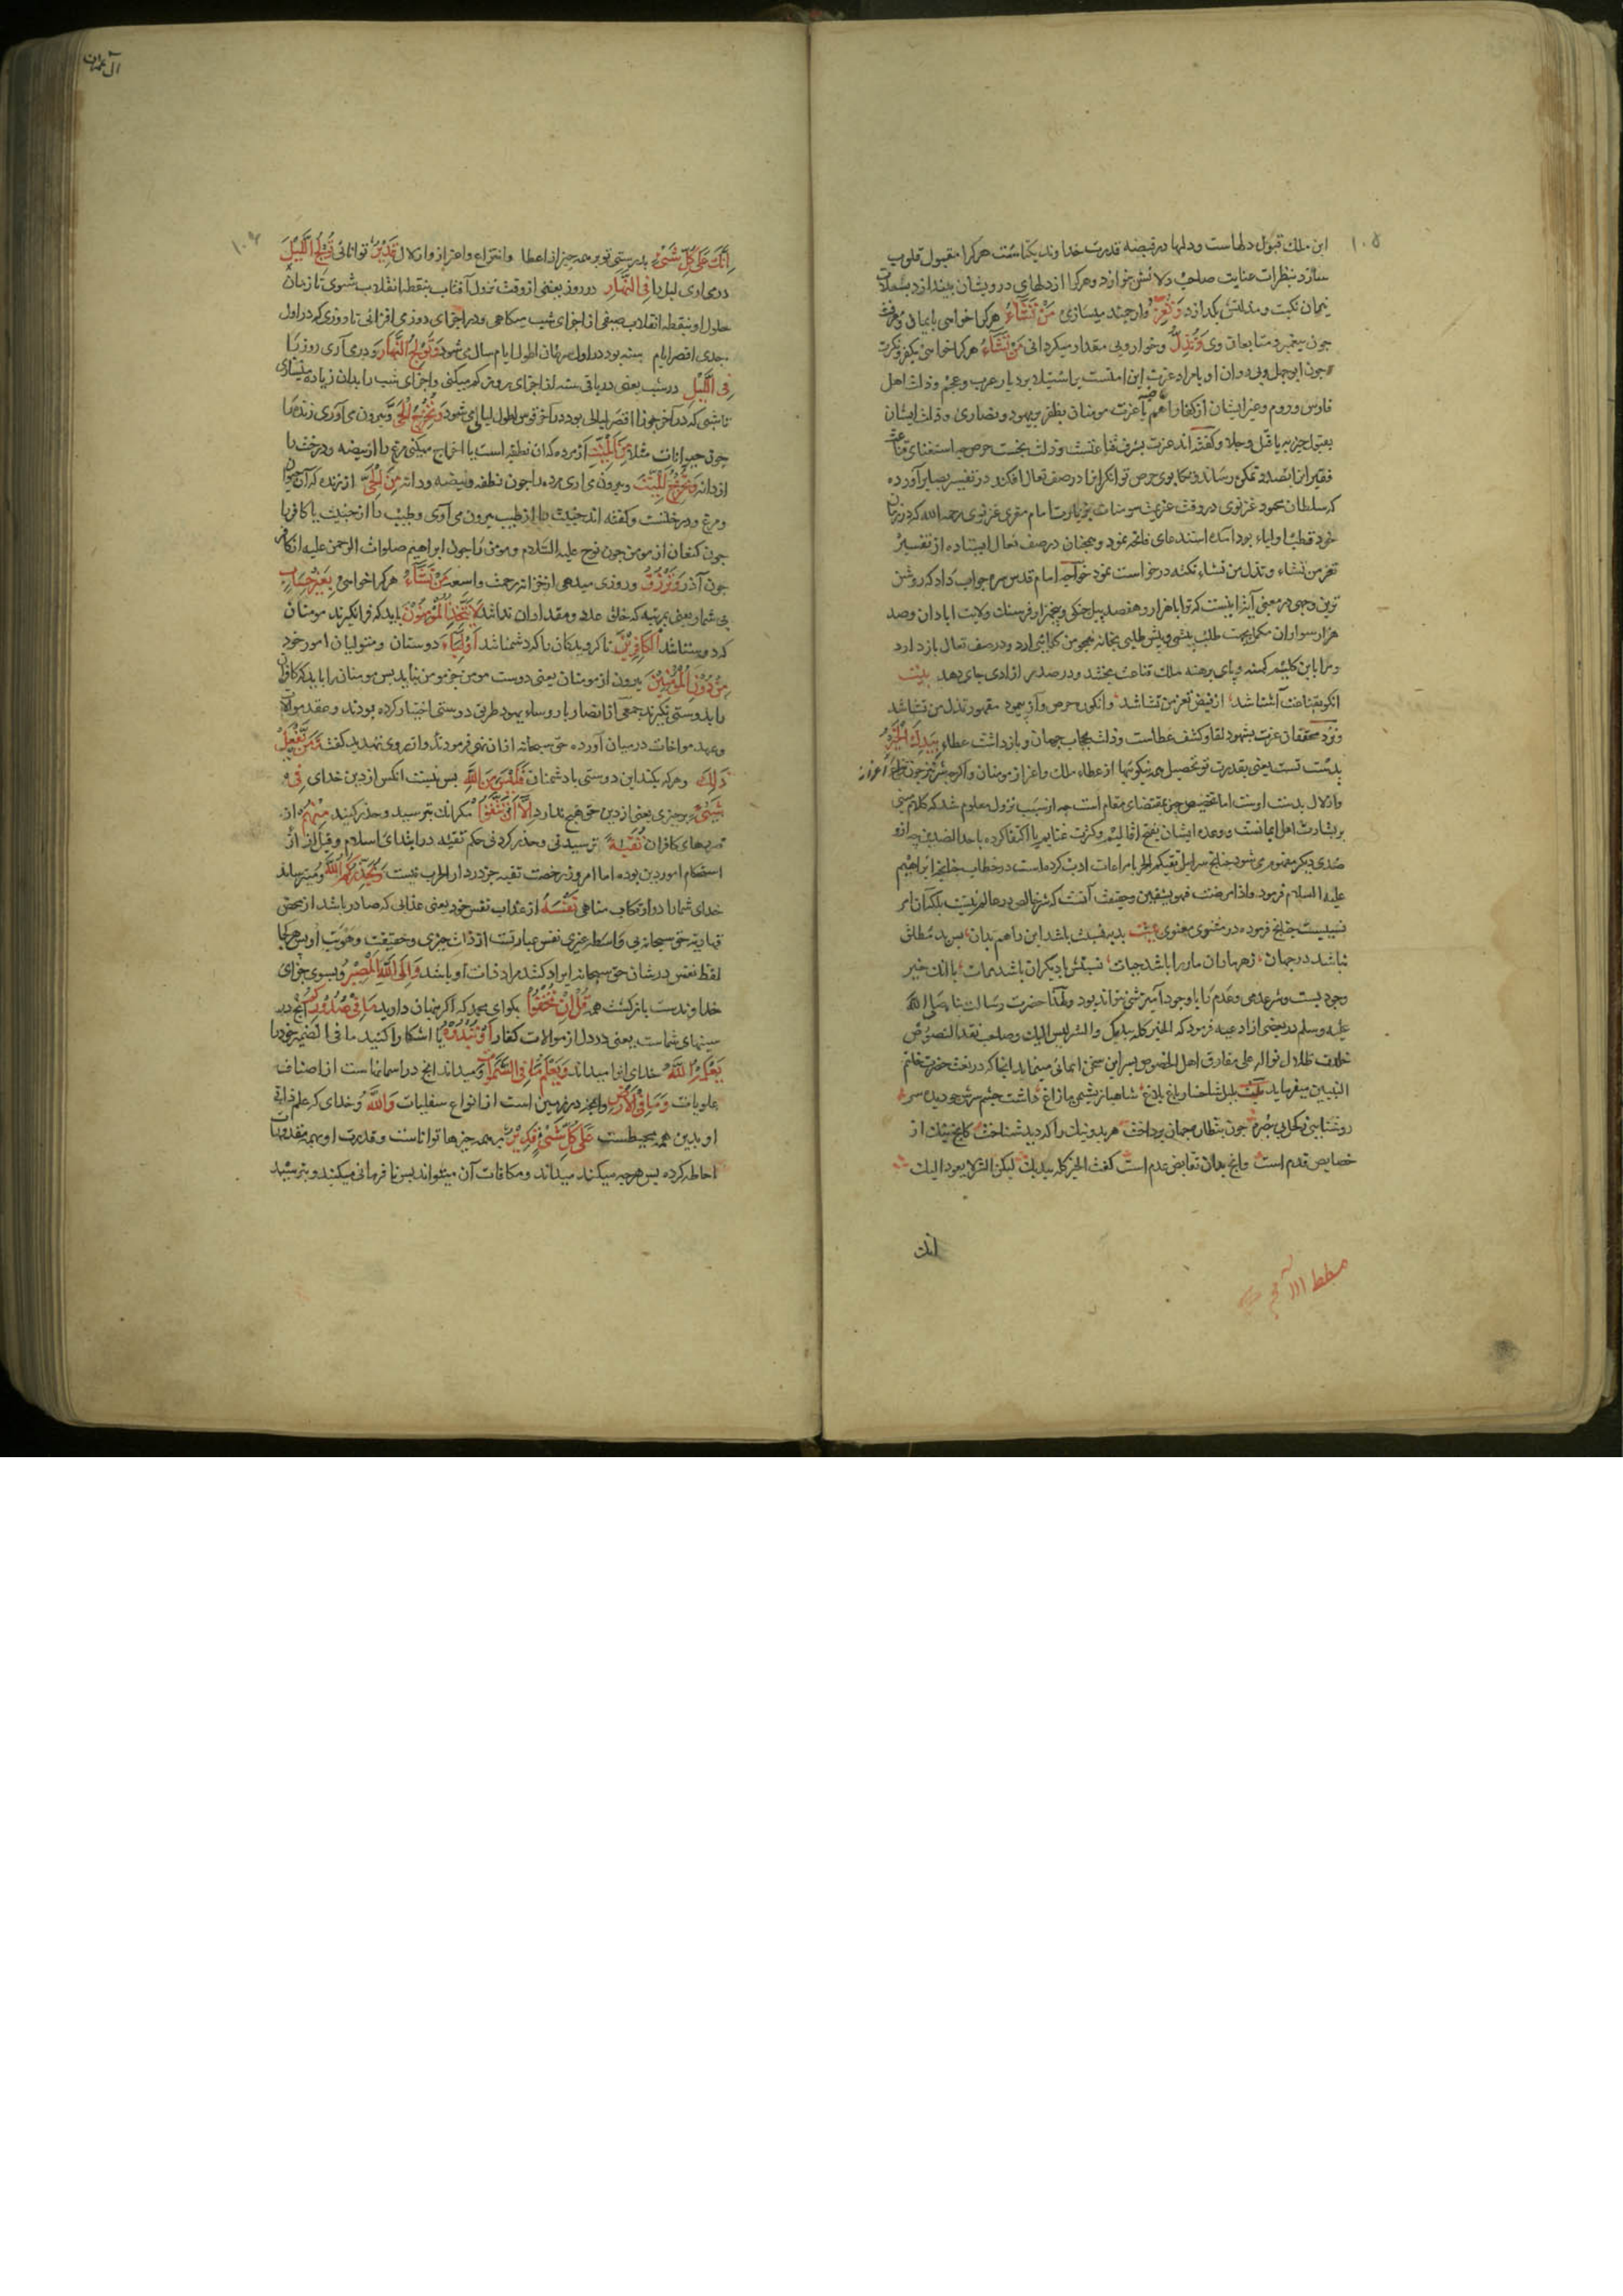 ۱۰۵
این ملك قبول دلهاست ودلها در قبضه قدرت خداوند یکتاست هرکرا مقبول قلوب
سازد بنظرات عنایت صاحب دلانش بنوازد وهرکرا از دلهای درویشان بیندازد بشعلات
نیران نکبت ومذلتش بکدازد وَتُعِزُّ وارجمند میسازی مَنْ تَشَاءُ هرکرا خواهی بایمان ومعرفت
چون پیغمبر ومتابعان وی وَتُذِلُّ وخوار وبی مقدار میکردانی مَنْ تَشَاءُ هرکرا خواهی بکفر ونکرت
چون ابوجهل وپی روان او یا مراد عزت این امتست باستیلا بر دیار عرب وعجم وذلت اهل
فارس وروم وغیرایشان از کفار یا عزت مومنان بظفر بر یهود ونصاری وذلت ایشان
بقبول جزیه یا قتل وجلا وکفته اند عزت بشرف قناعتست وذلت بخست حرص چه استغنای قناعت
فقیرانرا بصدر تمکن رساند وتکاپوی حرص توانکرانرا در صف نعال افکند در تفسیر بصایر آورده
که سلطان محمود غزنوی در وقت عزیمت سومنات بزیارت امام مقری غزنوی رحمه الله که در زمان
خود قطب اولیاء بود آمد استدعای فاتحه نمود وهمچنان در صف نعال ایستاده از تفسیر
تعز من تشاء وتذل من تشاء نکته درخواست نمود خواجه امام قدس سره جواب داد که روشن
ترین وجهی در معنی آیه اینست که ترا با هزار وهفصد پیل جنکی وپنجهزار فرسنك ولایت ابادان وصد
هزار سواران مکمل بجهت طلب بیشی وپیش طلبی بخانه همچو من کدایی ارد ودر صف نعال بازدارد
ومرا باین کلیم کهنه وپای برهنه ملك قناعت بخشد ودر صدر ازادی جای دهد بیت
انکو بقناعت آشنا شد از فیض تعز من تشا شد وانکو ز حرص وآز پیمود مقهور تذل من تشا شد
ونزد محققان عزت بشهود لقا وکشف غطاست وذلت بحجاب حرمان وبازداشت عطا بِيَدِكَ الْخَيْرُ
بدست تست یعنی بقدرت تو تحصیل همه نیکوییها از عطاء ملك واعزاز مومنان واکرچه شر نیز چون نزع اعزاز
واذلال بدست اوست اما تخصیص خیر بمقتضای مقام است چه از سبب نزول معلوم شد که کلام مبنی
بر بشارت اهل ایمانست ووعده ایشان بفتح اقالیم وکثرت غنایم یا اکتفا کرده باحد الضدین چه از او
ضدی دیکر مفهوم می شود چنانچه سرابیل تقیکم الحر یا مراعات ادب کرده است در خطاب چنانچه ابراهیم
علیه السلام فرمود واذا مرضت فهو یشفین وحقیقت آنست که شر خالص در عالم نیست بلکه آن امر
نسبیست چنانچه فرموده در مثنوی معنوی بیت بد به نسبت باشد این را هم بدان پس بد مطلق
نباشد در جهان زهر ماران مار را باشد حیات نسبتش با دیکران باشد ممات یا انك خیر
وجودیست وشر عدمی وعدم را با وجود آمیزشی نتواند بود ولهذا حضرت رسالت پناه صلی الله
علیه وسلم در بعضی از ادعیه فرمود که الخیر کله بیدیك والشر لیس الیك وصاحب نقد النصوص
خلدت ظلال نواله علی مفارق اهل الخصوص بسر این سخن ایمائی مینماید انجا که در نعت حضرت خاتم
النبیین میفرماید بیت
خصایص قدم است وانچه بدان نقایض عدم است کفت الخیر کله بیدیك لیکن الشر لا یعود الیك
انك
آل عمران
إِنَّكَ عَلَى كُلِّ شَيْءٍ بدرستی تو بر همه چیز از اعطا وانتزاع واعزاز واذلال قَدِيرٌ توانائی تُولِجُ اللَّيْلَ
درمی اری لیل را فِي النَّهَارِ در روز یعنی از وقت نزول آفتاب بنقطه انقلاب شتوی تا زمان
حلول او بنقطه انقلاب صیفی از اجزای شب میکاهی ودر اجزای روز می افزائی تا روزی که در اول
جدی اقصر ایام سنه بود در اول سرطان اطول ایام سال می شود وَتُولِجُ النَّهَارَ ودرمی آری روز را
فِي اللَّيْلِ در شب یعنی در باقی سنه از اجزای روز کم میکنی واجزای شب را بدان زیاده میسازی
تا شبی که در آخر جوزا اقصر لیالی بود در آخر قوس اطول لیالی می شود وَتُخْرِجُ الْحَيَّ وبیرون می آوری زنده را
چون حیوانات مثلا مِنَ الْمَيِّتِ از مرده که ان نطفه است یا اخراج میکنی مرغ را از بیضه ودرخت را
از دانه وَتُخْرِجُ الْمَيِّتَ وبیرون می اری مرده را چون نطفه وبیضه ودانه مِنَ الْحَيِّ از زنده که آن حیوان
ومرغ ودرختست وکفته اند خبیث را از طیب بیرون می آوری وطیب را از خبیث یا کافر را
چون کنعان از مومن چون نوح علیه السلام ومومن را چون ابراهیم صلوات الرحمن علیه از کافر
چون آذر وَتَرْزُقُ وروزی میدهی از خزانه رحمت واسعه مَنْ تَشَاءُ هرکرا خواهی بِغَيْرِ حِسَابٍ
بی شمار یعنی بمرتبه که خلق عدد ومقدار ان نداند لَا يَتَّخِذِ الْمُؤْمِنُونَ باید که فرانکیرند مومنان
که دوستانند الْكَافِرِينَ ناکرویدکان را که دشمنانند أَوْلِيَاءَ دوستان ومتولیان امور خود
مِنْ دُونِ الْمُؤْمِنِينَ بیرون از مومنان یعنی دوست مومن جز مومن نباید پس مومنان را باید که کافران
را بدوستی نکیرند جمعی از انصار با روساء یهود طریق دوستی اختیار کرده بودند وعقد موالات
وعهد مواخات در میان آورده حق سبحانه ازان نهی فرمود واز روی تهدید کفت وَمَنْ يَفْعَلْ
ذَلِكَ وهرکه بکند این دوستی با دشمنان فَلَيْسَ مِنَ اللَّهِ پس نیست انکس از دین خدای فِي
شَيْءٍ در چیزی یعنی از دین حق هیچ ندارد إِلَّا أَنْ تَتَّقُوا مکر انك بترسید وحذر کنید مِنْهُمْ از
ضررهای کافران تُقَاةً ترسیدنی وحذر کردنی حکم تقیه در ابتدای اسلام وقبل از
استحکام امور دین بوده اما امروز رخصت تقیه جز در دار الحرب نیست وَيُحَذِّرُكُمُ اللَّهُ ومیترساند
خدای شما را در ارتکاب مناهی نَفْسَهُ از عذاب نفس خود یعنی عذابی که صادر باشد از محض
قهاریت حق سبحانه بی واسطه غیری نفس عبارتست از ذات چیزی وحقیقت وهویت او پس هرکجا
لفظ نفس در شان حق سبحانه ایراد کنند مراد ذات او باشد وَإِلَى اللَّهِ الْمَصِيرُ وبسوی جزای
خداوندست بازکشت همه قُلْ إِنْ تُخْفُوا بکو ای محمد که اکر پنهان دارید مَا فِي صُدُورِكُمْ آنچه در
سینهای شماست یعنی در دل از موالات کفار أَوْ تُبْدُوهُ یا اشکارا کنید ما فی الضمیر خود را
يَعْلَمْهُ اللَّهُ خدای انرا میداند وَيَعْلَمُ مَا فِي السَّمَوَاتِ ومیداند انچه در اسمانهاست از اصناف
علویات وَمَا فِي الْأَرْضِ وانچه در زمین است از انواع سفلیات وَاللَّهُ وخدای که علم ذاتی
او بدین همه محیطست عَلَى كُلِّ شَيْءٍ قَدِيرٌ بر همه چیزها تواناست وقدرت او بهمه مقدورات
احاطه کرده پس هرچه میکنند میداند ومکافات آن میتواند پس نافرمانی میکنید وبترسید